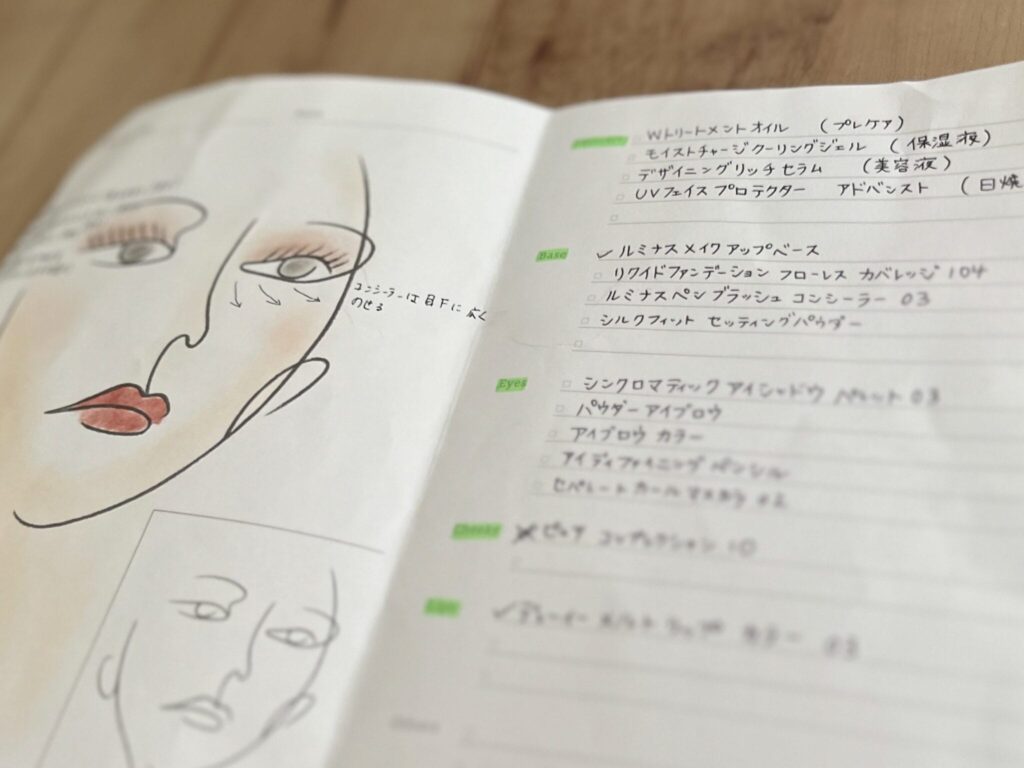 コンシーラーは目下に広く
のせる
Wトリートメントオイル (プレケア)
モイストチャージクーリングジェル (保湿液)
デザイニングリッチセラム (美容液)
UVフェイスプロテクター アドバンスト (日焼
Base
ルミナスメイクアップベース
リクイドファンデーション フローレス カバレッジ 104
ルミナスペンブラッシュ コンシーラー 03
シルクフィット セッティングパウダー
Eyes
シンクロマティックアイシャドウ パレット 03
パウダーアイブロウ
アイブロウ カラー
アイディファイニング ペンシル
セパレートカールマスカラ 02
Cheeks
ピュア コンプレクション 10
Lips
カラー 03
Others